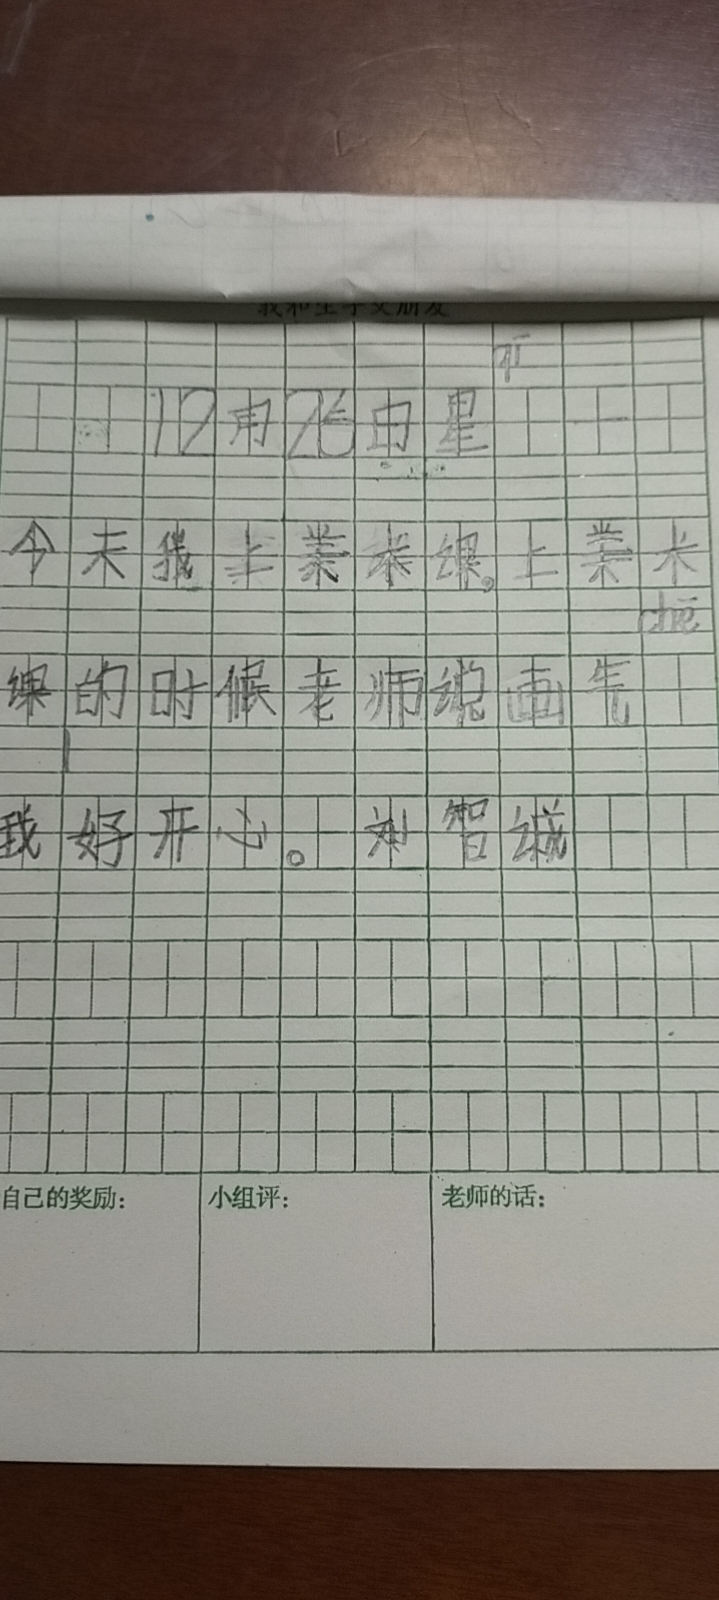 我和生字交朋友
qī
12月26日星
今天我上美术课。上美术
chē
课的时候老师说画气
我好开心。刘智诚
自己的奖励： 小组评： 老师的话：